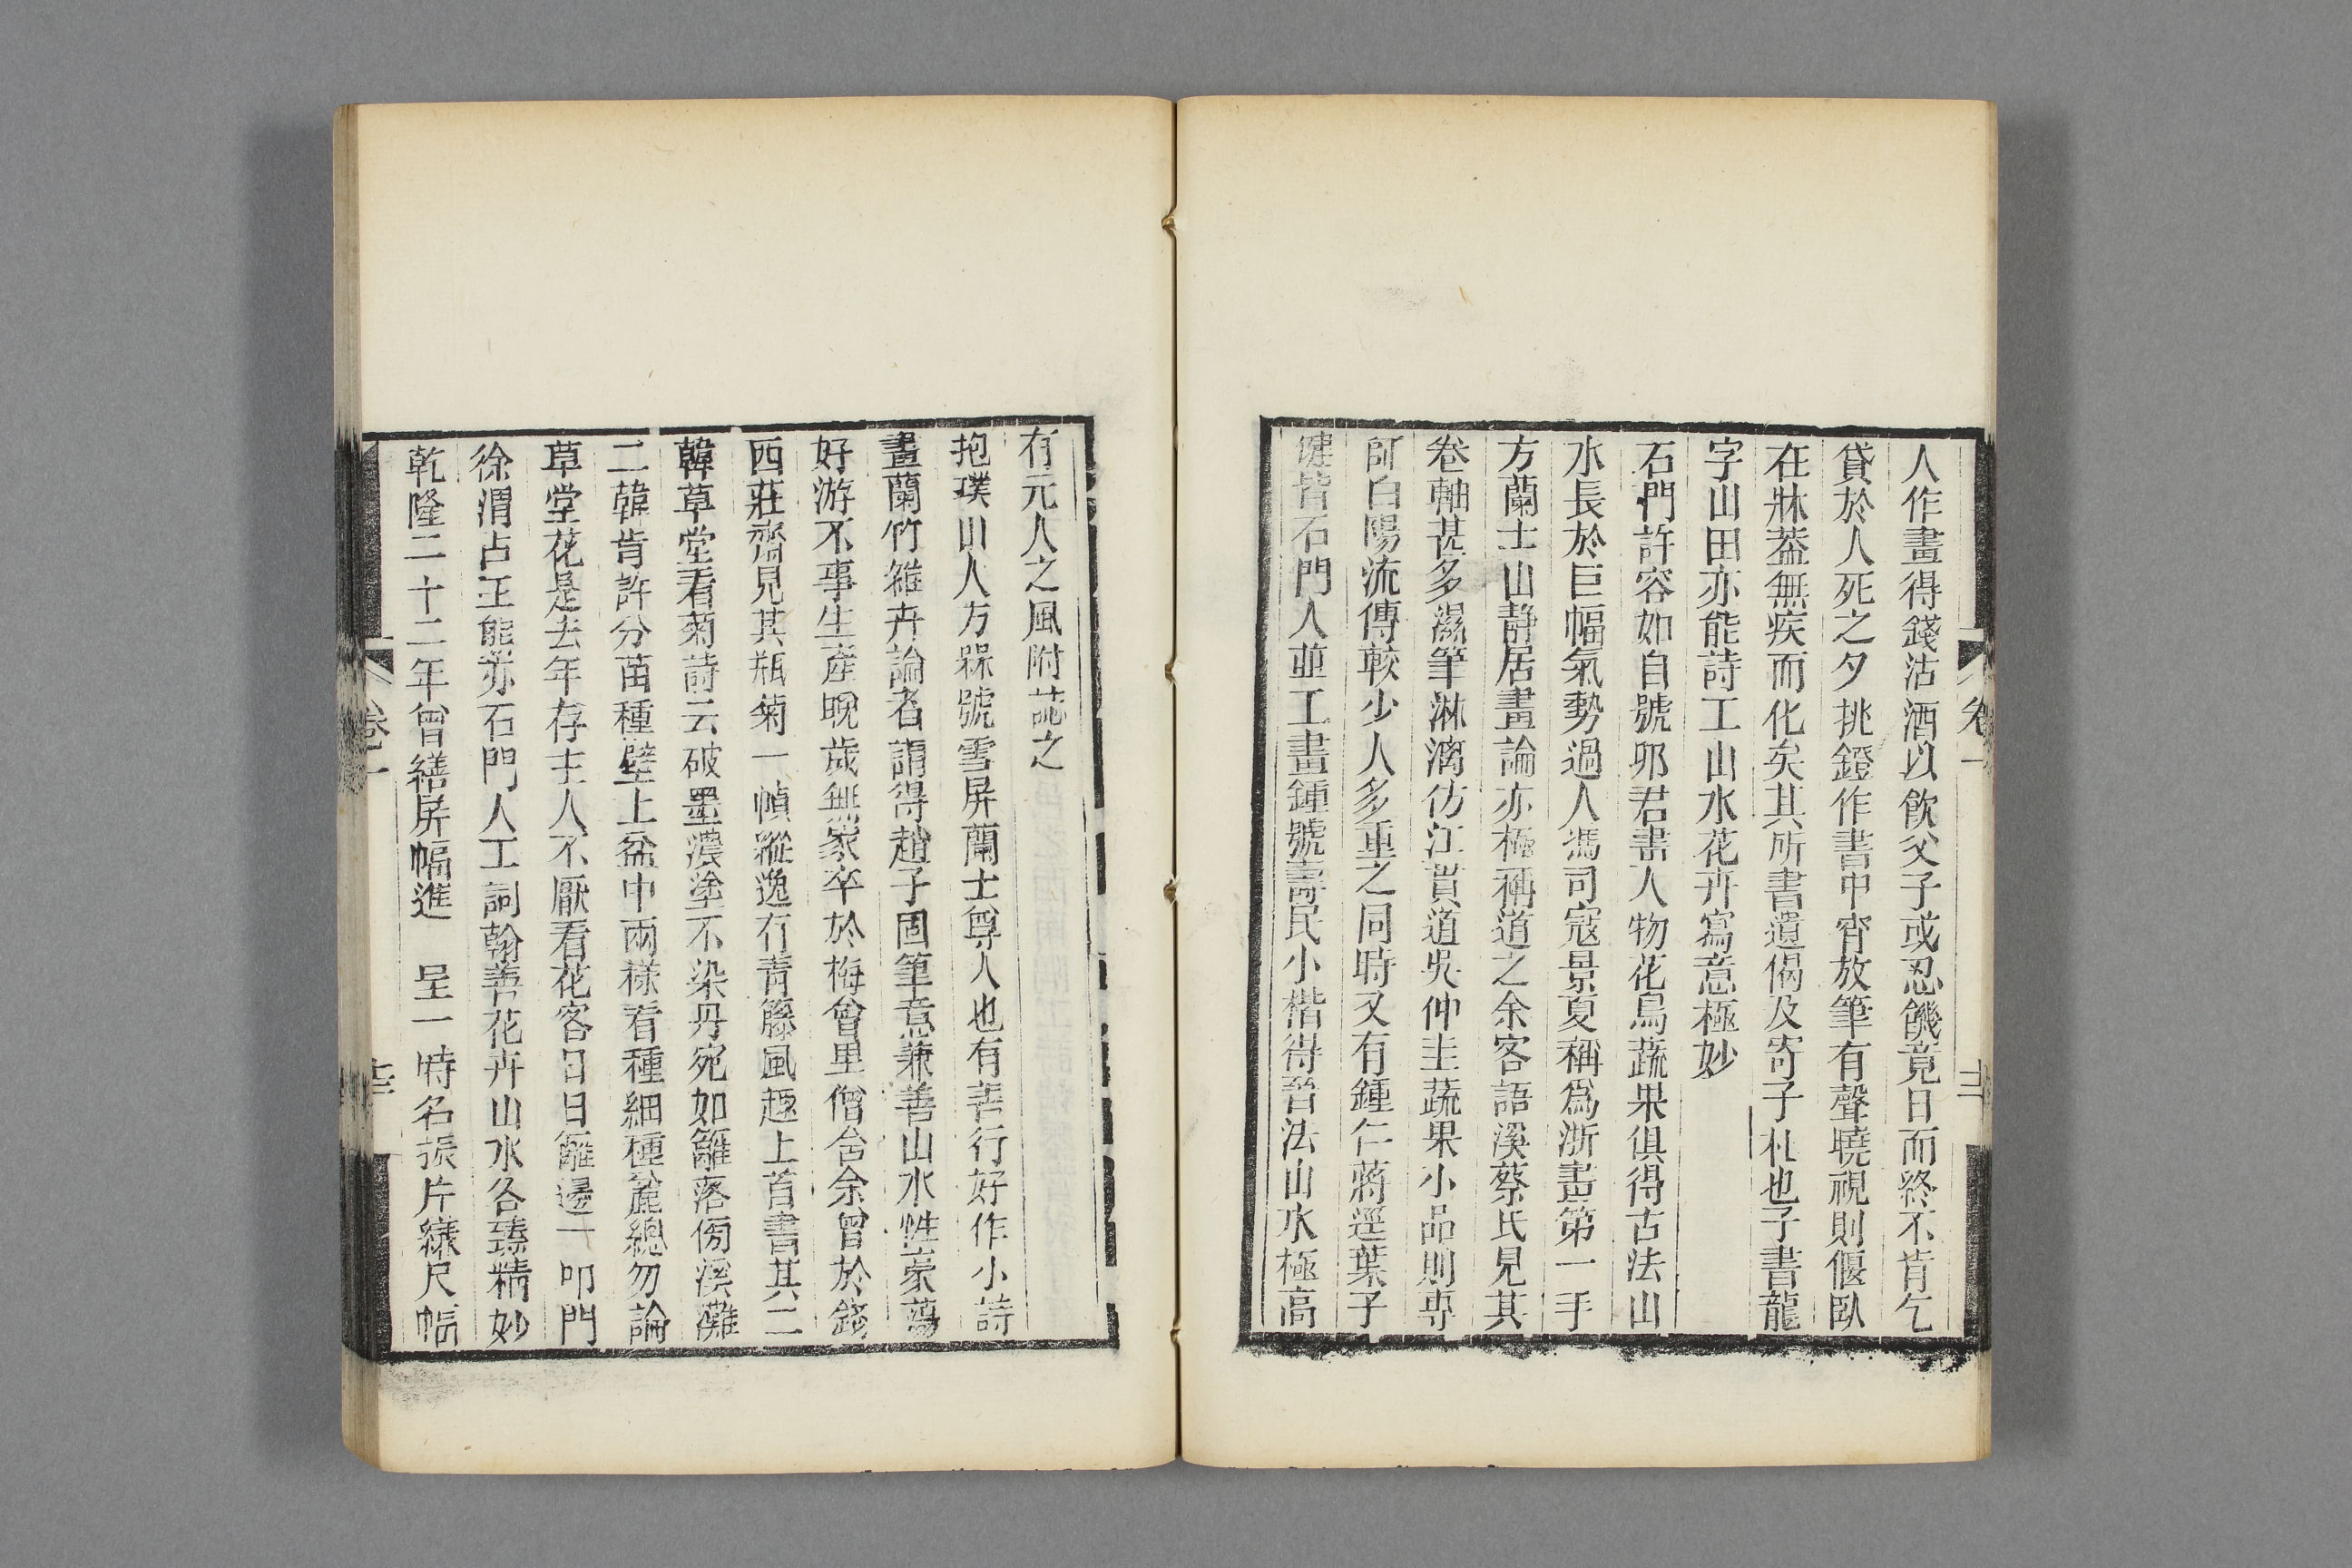 人作畫得錢沽酒以飲父子或忍饑竟日而終不肯乞
貸於人死之夕挑鐙作書中宵放筆有聲曉視則偃臥
在牀葢無疾而化矣其所書遺偈及寄子札也子書龍
字山田亦能詩工山水花卉寫意極妙
石門許容如自號邪君畫人物花鳥蔬果俱得古法山
水長於巨幅氣勢過人馮司寇景夏稱爲浙畫第一手
方蘭士山靜居畫論亦極稱道之余客語溪蔡氏見其
卷軸甚多濕筆淋漓仿江貫道吳仲圭蔬果小品則專
師白陽流傳較少人多重之同時又有鍾仁蔣逕葉子
健皆石門人並工畫鍾號壽民小楷得晉法山水極高
有元人之風附誌之
抱璞山人方槑號雪屏蘭士尊人也有善行好作小詩
畫蘭竹雜卉論者謂得趙子固筆意兼善山水性豪蕩
好游不事生產晚歲無家卒於梅會里僧舍余曾於錢
西莊齋見其瓶菊一幀縱逸有青籐風趣上首書其二
韓草堂看菊詩云破墨濃塗不染丹宛如籬落傍溪灘
二韓肯許分苗種壁上盆中兩樣看種細種麄總勿論
草堂花是去年存主人不厭看花客日日籬邊一叩門
徐渭占玉熊亦石門人工詞翰善花卉山水各臻精妙
乾隆二十二年曾繕屏幅進　呈一時名振片縑尺幅
卷一